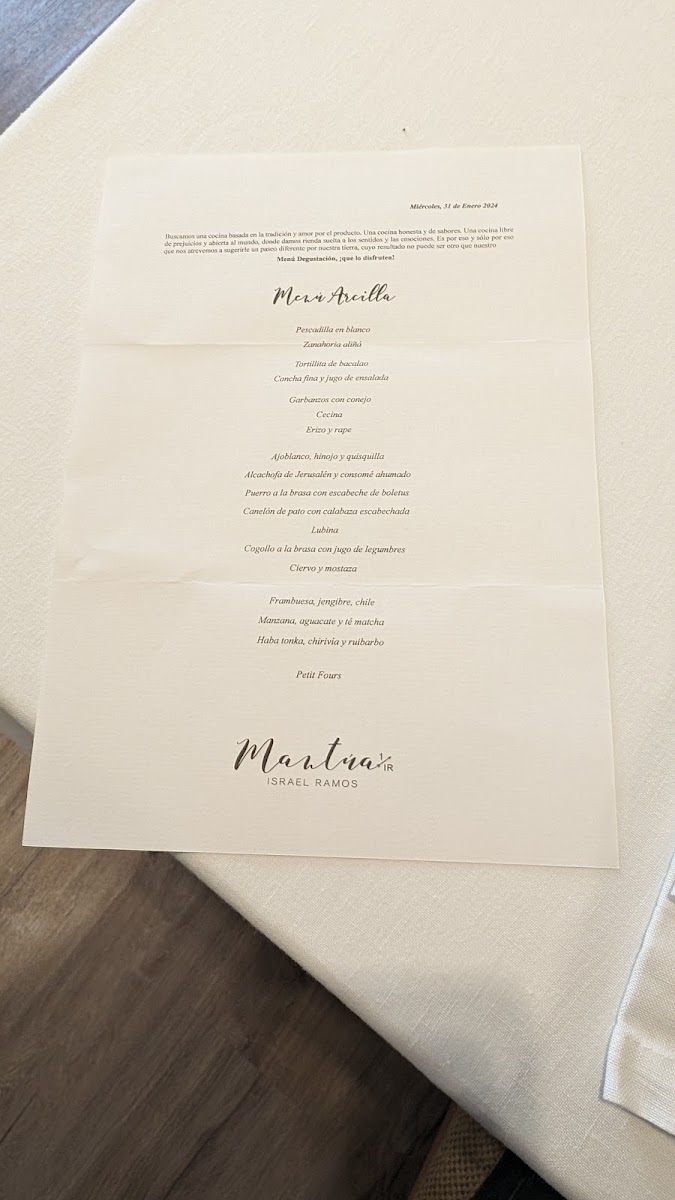 Miércoles, 31 de Enero 2024
Buscamos una cocina basada en la tradición y amor por el producto. Una cocina honesta y de sabores. Una cocina libre
de prejuicios y abierta al mundo, donde damos rienda suelta a los sentidos y las emociones. Es por eso y sólo por eso
que nos atrevemos a sugerirte un paseo diferente por nuestra tierra, cuyo resultado no puede ser otro que nuestro
Menú Degustación, ¡que lo disfrutes!
Menú Arcilla
Pescadilla en blanco
Zanahoria aliñá
Tortillita de bacalao
Concha fina y jugo de ensalada
Garbanzos con conejo
Cecina
Erizo y rape
Ajoblanco, hinojo y quisquilla
Alcachofa de Jerusalén y consomé ahumado
Puerro a la brasa con escabeche de boletus
Canelón de pato con calabaza escabechada
Lubina
Cogollo a la brasa con jugo de legumbres
Ciervo y mostaza
Frambuesa, jengibre, chile
Manzana, aguacate y té matcha
Haba tonka, chirivía y ruibarbo
Petit Fours
Mantúa 1/IR
ISRAEL RAMOS